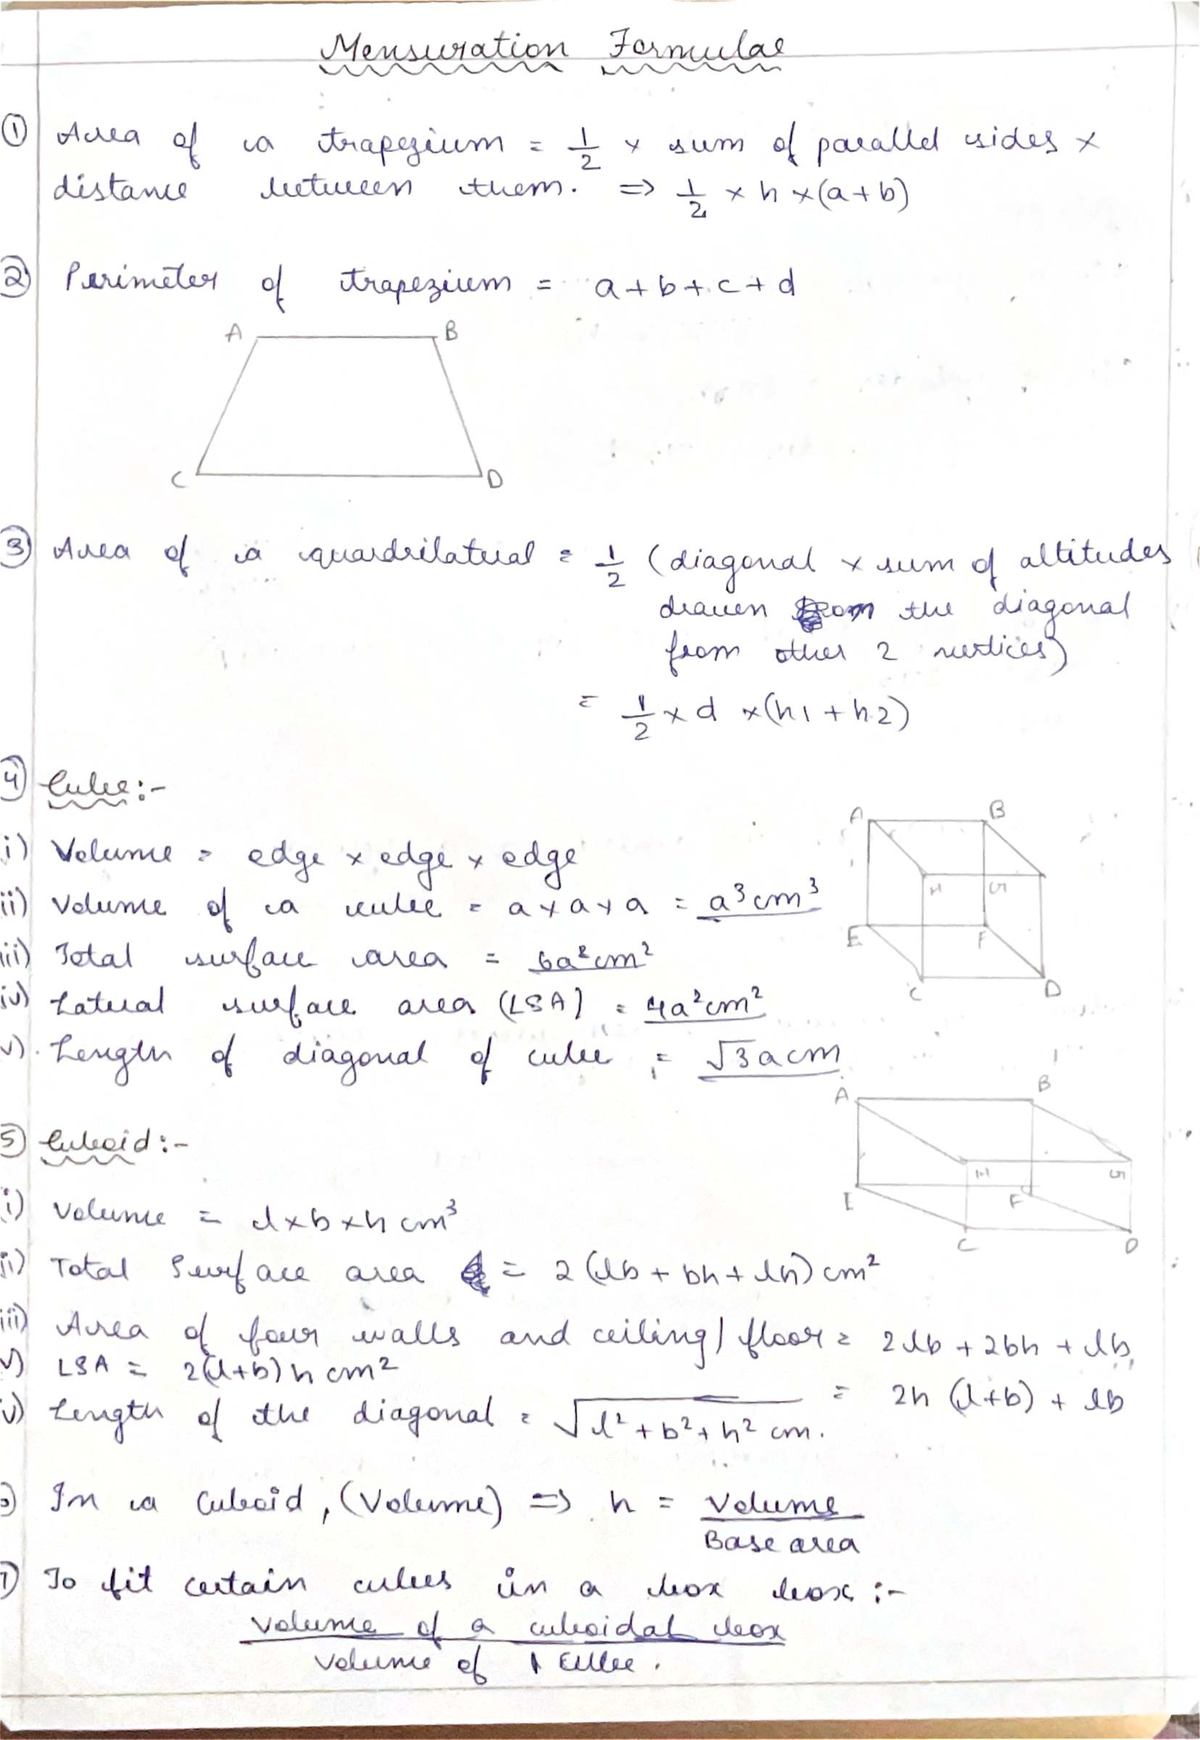 Mensuration Formulae
① Area of a trapezium = 1/2 × sum of parallel sides ×
distance between them. => 1/2 × h × (a+b)
② Perimeter of trapezium = a+b+c+d
A B
C D
③ Area of a quadrilateral = 1/2 (diagonal × sum of altitudes
drawen from the diagonal
from other 2 vertices)
= 1/2 × d × (h1 + h2)
④ Cube:-
A B
i) Volume = edge × edge × edge
H G
ii) Volume of a cube = a × a × a = a³cm³
E F
iii) Total surface area = 6a²cm²
C D
iv) Lateral surface area (LSA) = 4a²cm²
v) Length of diagonal of cube = √3 a cm
A B
⑤ Cuboid:-
H G
E F
i) Volume = l×b×h cm³
C D
ii) Total Surface area = 2(lb + bh + lh) cm²
iii) Area of four walls and ceiling/floor = 2lb + 2bh + lb
= 2h (l+b) + lb
v) LSA = 2(l+b) h cm²
v) Length of the diagonal = √l² + b² + h² cm.
In a cuboid, (Volume) => h = Volume/Base area
7) To fit certain cubes in a box box :-
Volume of a cuboidal box
Volume of 1 cube.